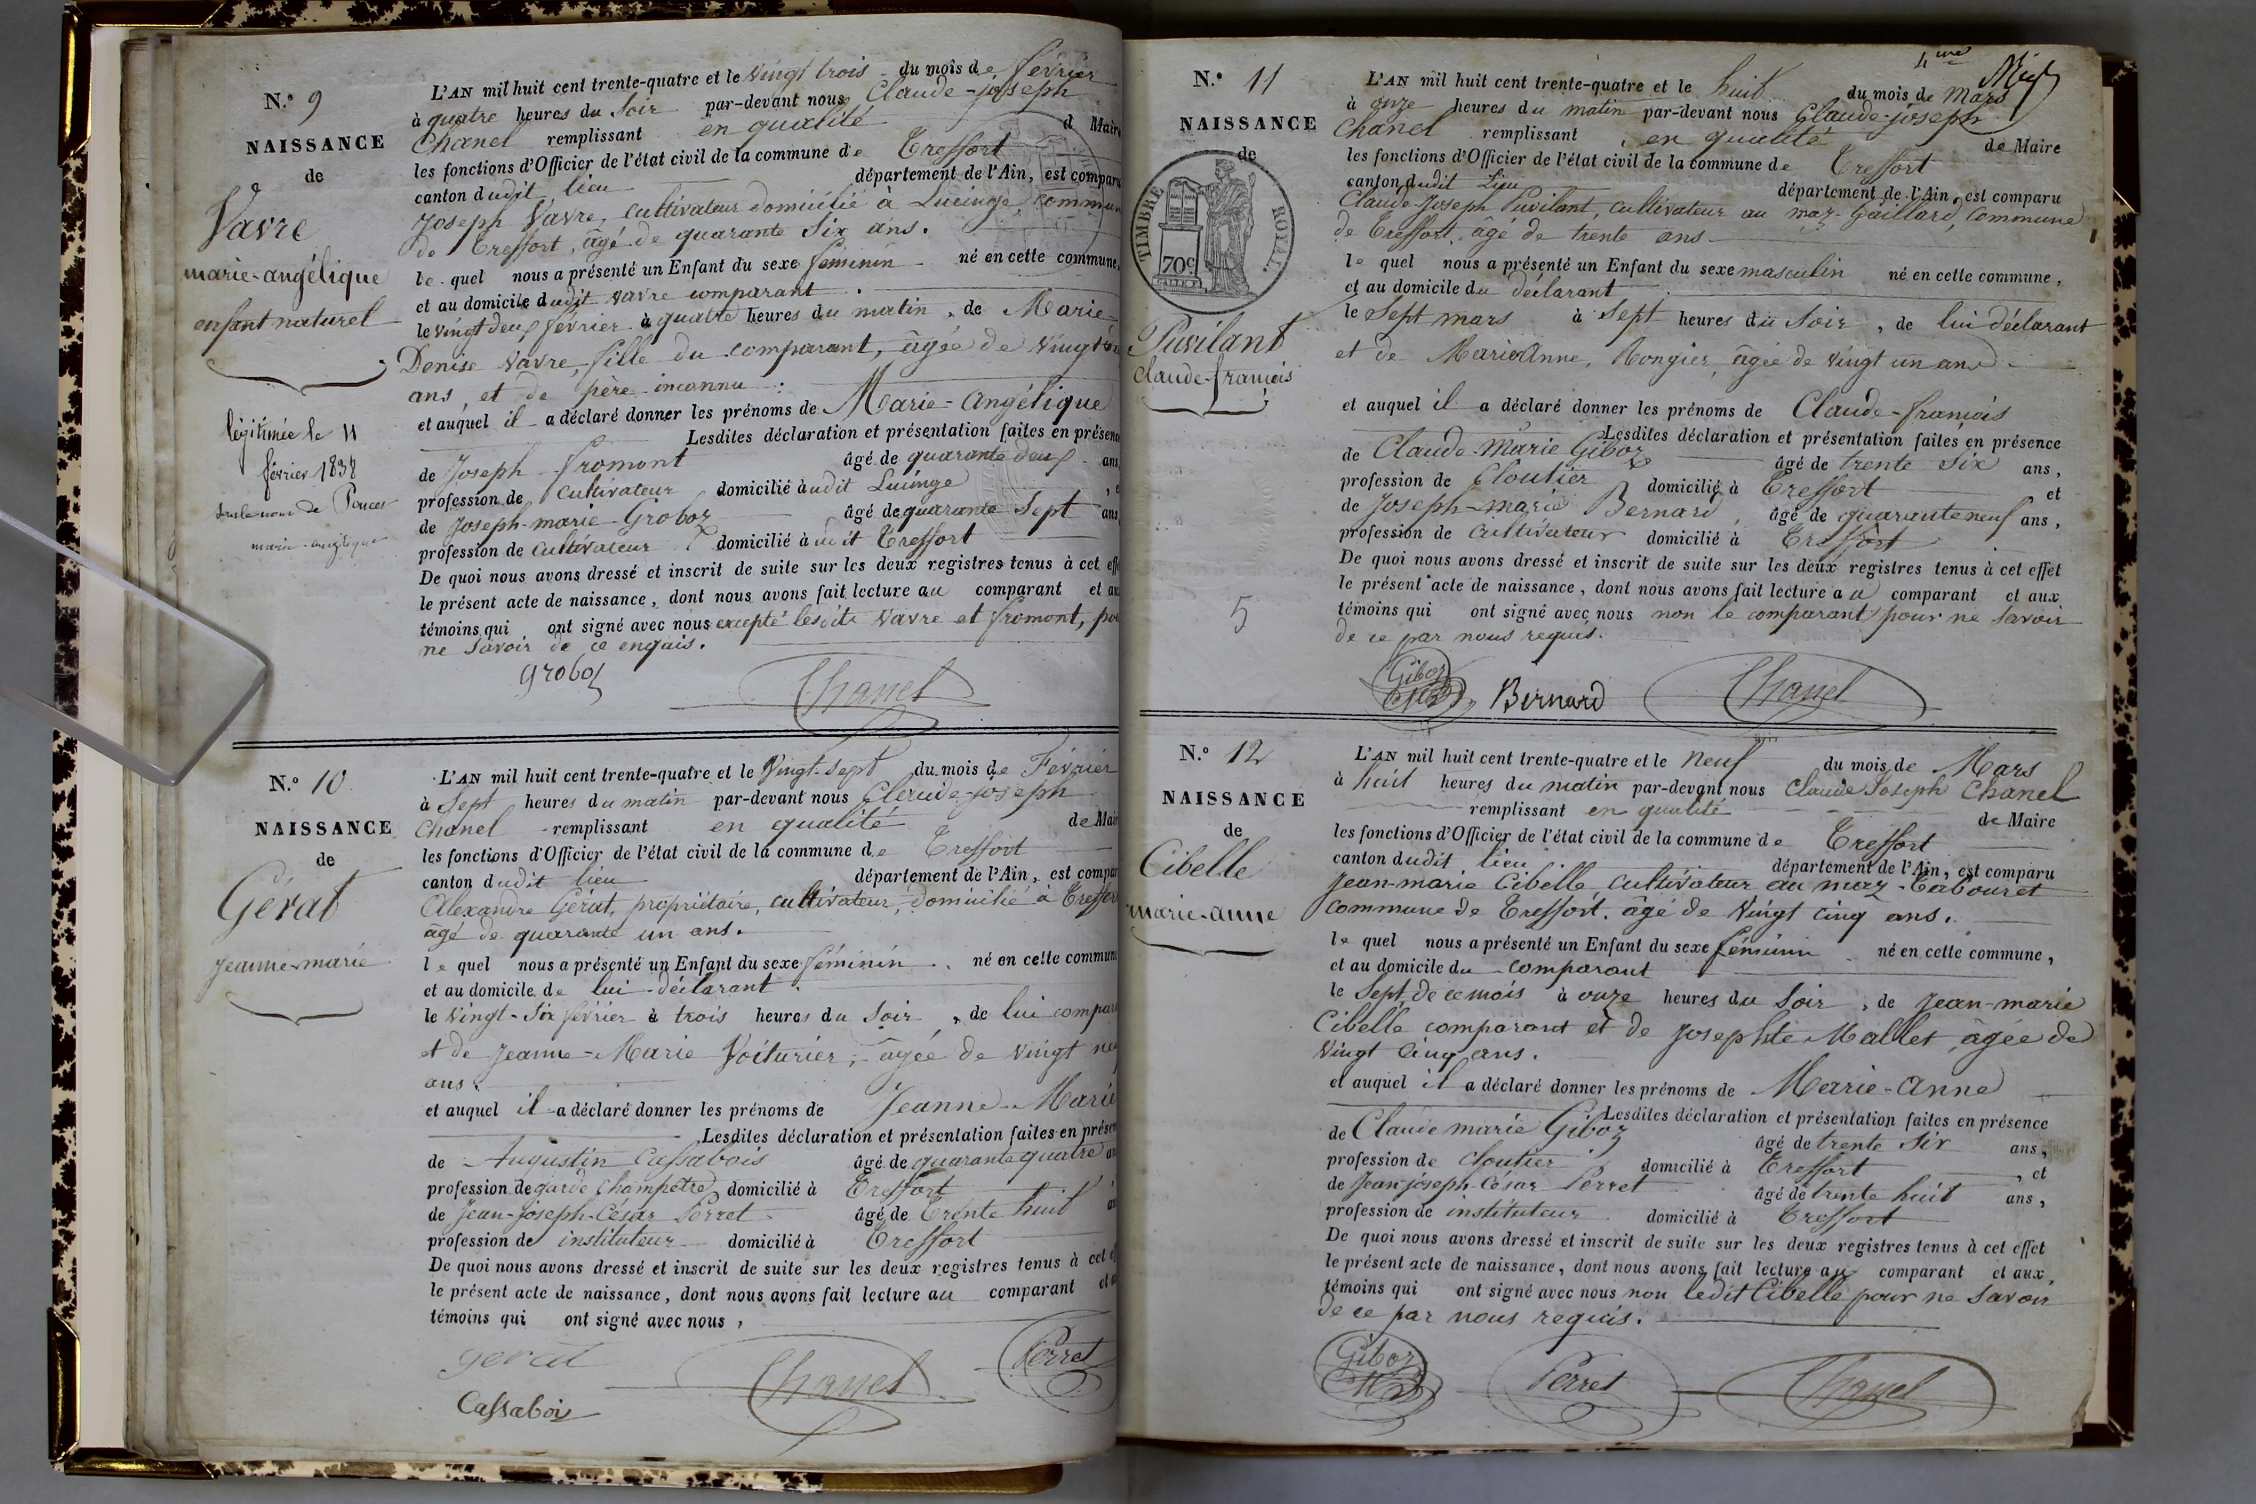 N.º 9
NAISSANCE
de
Vavre
marie-angélique
enfant naturel
légitimée le 11
février 1838
sous le nom de
marie-angélique
L'AN mil huit cent trente-quatre et le vingt trois du mois de février
à quatre heures du soir par-devant nous Claude-joseph
Chanel remplissant en qualité d Maire
les fonctions d'Officier de l'état civil de la commune de Treffort
canton dudit lieu département de l'Ain, est comparu
Joseph Vavre, cultivateur domicilié à Lucinge, commune
de Treffort, âgé de quarante six ans.
le quel nous a présenté un Enfant du sexe féminin né en cette commune,
et au domicile dudit vavre comparant.
le vingt deux février à quatre heures du matin, de Marie-
Denise Vavre, fille du comparant, âgée de vingt
ans, et de père inconnu :
et auquel il a déclaré donner les prénoms de Marie-Angélique
Lesdites déclaration et présentation faites en présence
de Joseph fromont âgé de quarante deux ans,
profession de cultivateur domicilié àudit Lucinge
de Joseph-marie Groboz âgé de quarante Sept ans
profession de cultivateur domicilié à udit Treffort
De quoi nous avons dressé et inscrit de suite sur les deux registres tenus à cet eff
le présent acte de naissance, dont nous avons fait lecture au comparant et aux
témoins qui ont signé avec nous excepté lesdits Vavre et fromont, pou
ne savoir de ce enquis.
groboz
Chanel
N.º 10
NAISSANCE
de
Gérat
jeanne-marie
L'AN mil huit cent trente-quatre et le Vingt-sept du mois de Février
à Sept heures du matin par-devant nous Claude-joseph
Chanel remplissant en qualité de Mair
les fonctions d'Officier de l'état civil de la commune de Treffort
canton dudit lieu département de l'Ain, est compar
Alexandre Gérat, propriétaire, cultivateur, domicilié à Treffort
âgé de quarante un ans.
le quel nous a présenté un Enfant du sexe féminin né en cette commune
et au domicile de lui déclarant.
le vingt-six février à trois heures du soir, de lui compara
et de Jeanne-Marie Voiturier, âgée de vingt neu
ans.
et auquel il a déclaré donner les prénoms de Jeanne-Marie
Lesdites déclaration et présentation faites en présen
de Augustin Cassabois âgé de quarante quatre an
profession de garde champêtre domicilié à Treffort
de Jean-joseph-César Perret âgé de trente huit an
profession de instituteur domicilié à Treffort
De quoi nous avons dressé et inscrit de suite sur les deux registres tenus à cet ef
le présent acte de naissance, dont nous avons fait lecture au comparant et a
témoins qui ont signé avec nous,
gerat
Chanel
Perret
Cassabois
4me
N.º 11
NAISSANCE
de
TIMBRE ROYAL.
70c
Puvilant
Claude-françois
5
L'AN mil huit cent trente-quatre et le huit du mois de Mars
à onze heures du matin par-devant nous Claude-joseph
Chanel remplissant en qualité de Maire
les fonctions d'Officier de l'état civil de la commune de Treffort
canton dudit Lieu département de l'Ain, est comparu
Claude-Joseph Puvilant, cultivateur au maz-Gaillard, commune
de Treffort, âgé de trente ans
le quel nous a présenté un Enfant du sexe masculin né en cette commune,
et au domicile du déclarant
le Sept mars à Sept heures du soir, de lui déclarant
et de Marie Anne, Rongier, âgée de vingt un ans
et auquel il a déclaré donner les prénoms de Claude-françois
Lesdites déclaration et présentation faites en présence
de Claude-Marie Giboz âgé de trente six ans,
profession de Cloutier domicilié à Treffort et
de Joseph-marie Bernard, âgé de quarante neuf ans,
profession de cultivateur domicilié à Treffort
De quoi nous avons dressé et inscrit de suite sur les deux registres tenus à cet effet
le présent acte de naissance, dont nous avons fait lecture au comparant et aux
témoins qui ont signé avec nous non le comparant pour ne savoir
de ce par nous requis.
Giboz
Bernard
Chanel
N.º 12
NAISSANCE
de
Cibelle
marie-anne
L'AN mil huit cent trente-quatre et le neuf du mois de Mars
à huit heures du matin par-devant nous Claude Joseph Chanel
remplissant en qualité de Maire
les fonctions d'Officier de l'état civil de la commune de Treffort
canton dudit lieu département de l'Ain, est comparu
Jean-marie Cibelle cultivateur au maz-Tabouret
commune de Treffort. âgé de Vingt cinq ans.
le quel nous a présenté un Enfant du sexe féminin né en cette commune,
et au domicile du comparant
le Sept de ce mois à onze heures du Soir, de Jean-marie
Cibelle comparant et de Josephte Mallet âgée de
Vingt Cinq ans.
et auquel il a déclaré donner les prénoms de Marie-Anne
Lesdites déclaration et présentation faites en présence
de Claude marie Giboz âgé de trente six ans,
profession de cloutier domicilié à Treffort, et
de Jean joseph-César Perret âgé de trente huit ans,
profession de instituteur domicilié à Treffort
De quoi nous avons dressé et inscrit de suite sur les deux registres tenus à cet effet
le présent acte de naissance, dont nous avons fait lecture au comparant et aux
témoins qui ont signé avec nous non ledit Cibelle pour ne savoir
de ce par nous requis.
Giboz
Perret
Chanel